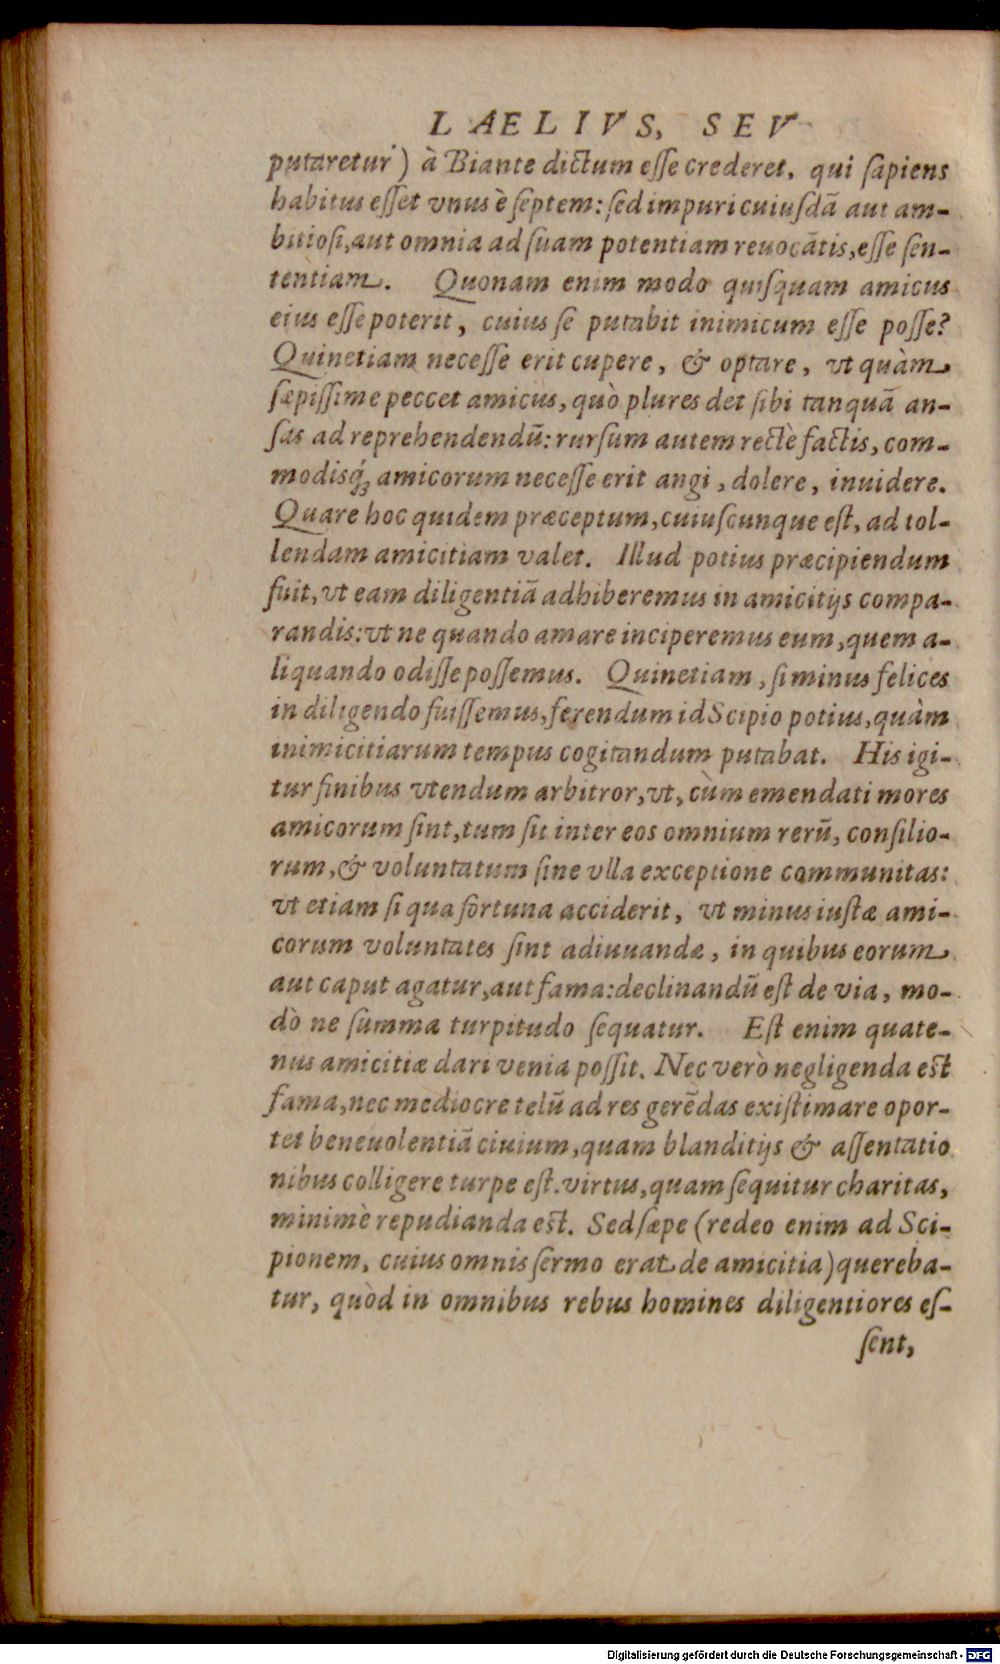 LAELIVS, SEV
putaretur) à Biante dictum eſſe crederet, qui ſapiens
habitus eſſet vnus è ſeptem: ſed impuri cuiuſdā aut am-
bitioſi, aut omnia ad ſuam potentiam reuocātis, eſſe ſen-
tentiam. Quonam enim modo quiſquam amicus
eius eſſe poterit, cuius ſe putabit inimicum eſſe poſſe?
Quinetiam neceſſe erit cupere, & optare, vt quàm
ſæpiſſime peccet amicus, quò plures det ſibi tanquā an-
ſas ad reprehendendū: rurſum autem rectè factis, com-
modisq́ꝫ amicorum neceſſe erit angi, dolere, inuidere.
Quare hoc quidem præceptum, cuiuſcunque eſt, ad tol-
lendam amicitiam valet. Illud potius præcipiendum
fuit, vt eam diligentiā adhiberemus in amicitijs compa-
randis: vt ne quando amare inciperemus eum, quem a-
liquando odiſſe poſſemus. Quinetiam, ſi minus felices
in diligendo fuiſſemus, ferendum id Scipio potius, quàm
inimicitiarum tempus cogitandum putabat. His igi-
tur finibus vtendum arbitror, vt, cùm emendati mores
amicorum ſint, tum ſit inter eos omnium rerū, conſilio-
rum, & voluntatum ſine vlla exceptione communitas:
vt etiam ſi qua fortuna acciderit, vt minus iuſtæ ami-
corum voluntates ſint adiuuandæ, in quibus eorum
aut caput agatur, aut fama: declinandū eſt de via, mo-
dò ne ſumma turpitudo ſequatur. Eſt enim quate-
nus amicitiæ dari venia poſſit. Nec verò negligenda eſt
fama, nec mediocre telū ad res gerēdas exiſtimare opor-
tet beneuolentiā ciuium, quam blanditijs & aſſentatio
nibus colligere turpe eſt. virtus, quam ſequitur charitas,
minimè repudianda eſt. Sed ſæpe (redeo enim ad Sci-
pionem, cuius omnis ſermo erat de amicitia)quereba-
tur, quòd in omnibus rebus homines diligentiores eſ-
ſent,
Digitalisierung gefördert durch die Deutsche Forschungsgemeinschaft - DFG